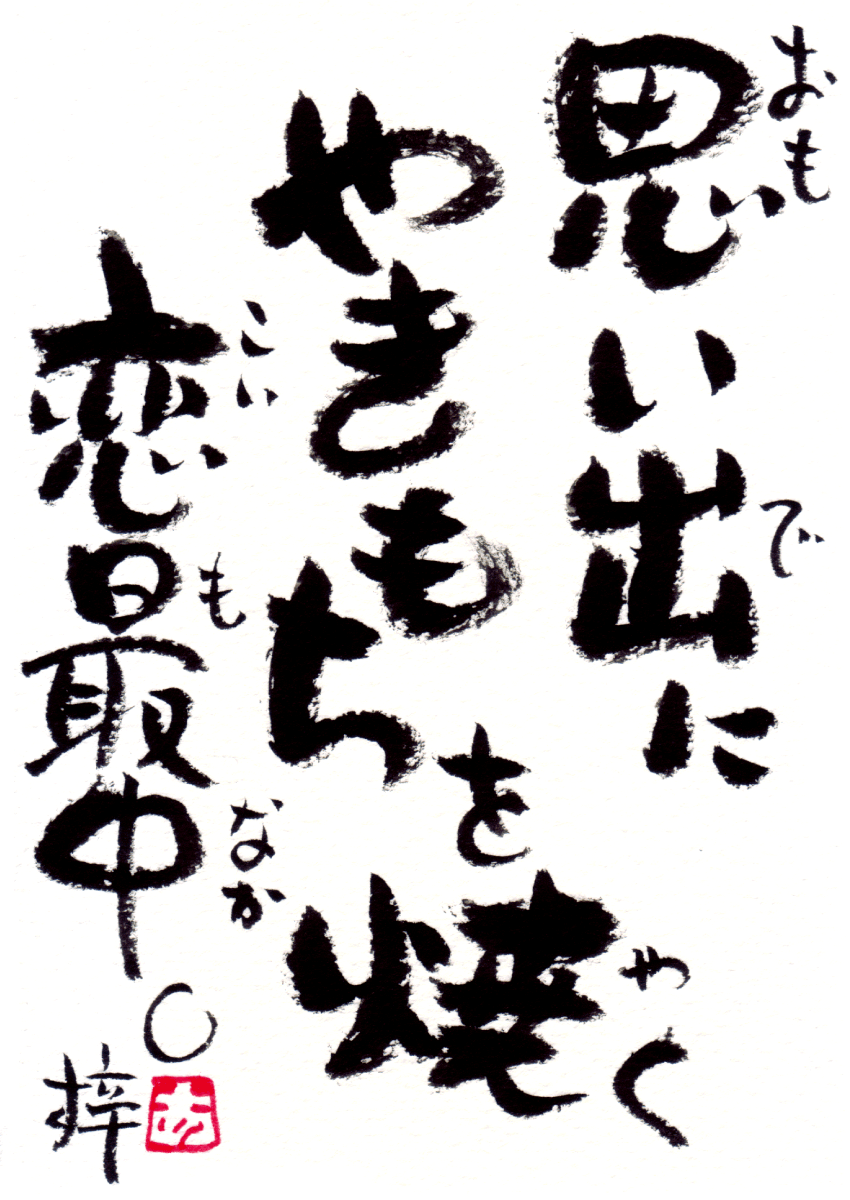 思い出に
おもい
で
やきもちを焼く
やく
恋最中
こい
も
なか
梓